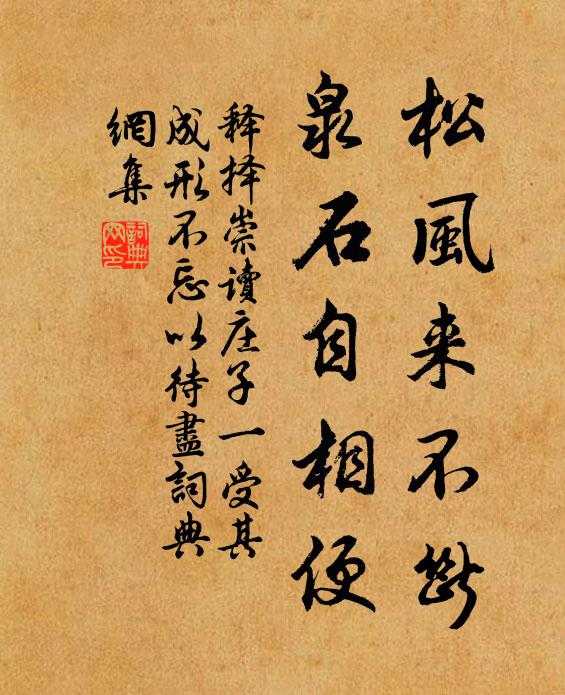 松風来不斷
泉石自相便
释择崇讀庄子一受其
成形不忘以待盡詞典
網集
詞典
网印